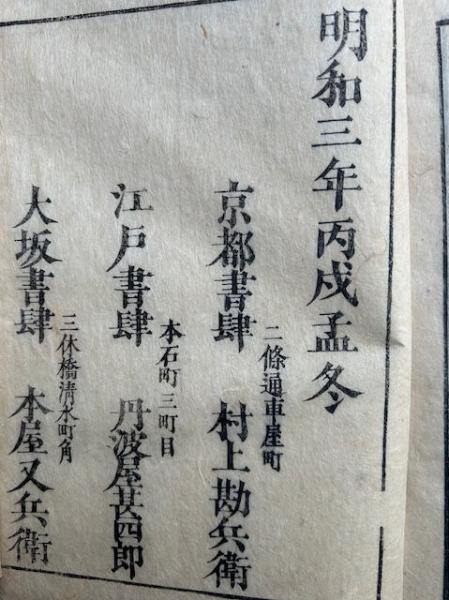 明和三年丙戌孟冬
二條通車屋町
京都書肆 村上勘兵衛
本石町三町目
江戸書肆 丹波屋甚四郎
三休橋清水町角
大坂書肆 本屋又兵衛